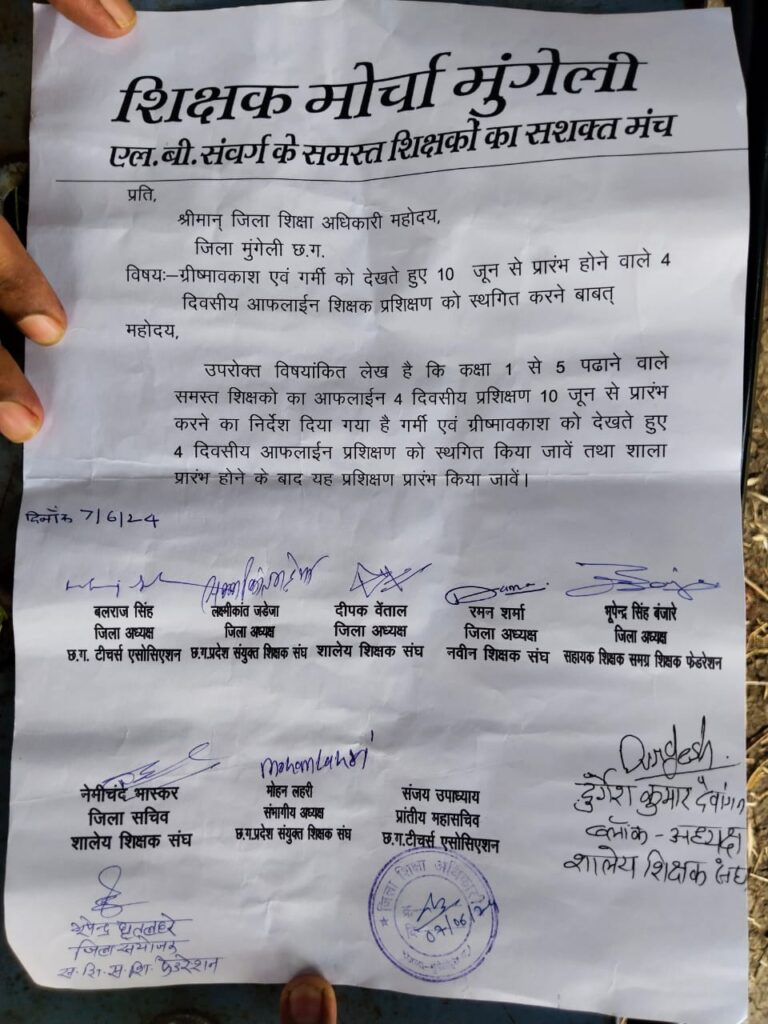 शिक्षक मोर्चा मुंगेली
एल.बी.संवर्ग के समस्त शिक्षकों का सशक्त मंच
प्रति,
श्रीमान् जिला शिक्षा अधिकारी महोदय,
जिला मुंगेली छ.ग.
विषयः–ग्रीष्मावकाश एवं गर्मी को देखते हुए 10 जून से प्रारंभ होने वाले 4
दिवसीय आफलाईन शिक्षक प्रशिक्षण को स्थगित करने बाबत्
महोदय,
उपरोक्त विषयांकित लेख है कि कक्षा 1 से 5 पढाने वाले
समस्त शिक्षको का आफलाईन 4 दिवसीय प्रशिक्षण 10 जून से प्रारंभ
करने का निर्देश दिया गया है गर्मी एवं ग्रीष्मावकाश को देखते हुए
4 दिवसीय आफलाईन प्रशिक्षण को स्थगित किया जावें तथा शाला
प्रारंभ होने के बाद यह प्रशिक्षण प्रारंभ किया जावें।
दिनाँक 7/6/24
बलराज सिंह लक्ष्मीकांत जडेजा दीपक वेंताल रमन शर्मा भूपेन्द्र सिंह बंजारे
जिला अध्यक्ष जिला अध्यक्ष जिला अध्यक्ष जिला अध्यक्ष जिला अध्यक्ष
छ.ग. टीचर्स एसोसिएशन छ.ग.प्रदेश संयुक्त शिक्षक संघ शालेय शिक्षक संघ नवीन शिक्षक संघ सहायक शिक्षक समग्र शिक्षक फेडरेशन
Durgesh
नेमीचंद भास्कर मोहन लहरी संजय उपाध्याय दुर्गेश कुमार देवांगन
जिला सचिव संभागीय अध्यक्ष प्रांतीय महासचिव ब्लॉक - अध्यक्ष
शालेय शिक्षक संघ छ.ग.प्रदेश संयुक्त शिक्षक संघ छ.ग.टीचर्स एसोसिएशन शालेय शिक्षक संघ
जिला शिक्षा अधिकारी
07/06/24
जिला संयोजक
स.शि.स.शि. फेडरेशन